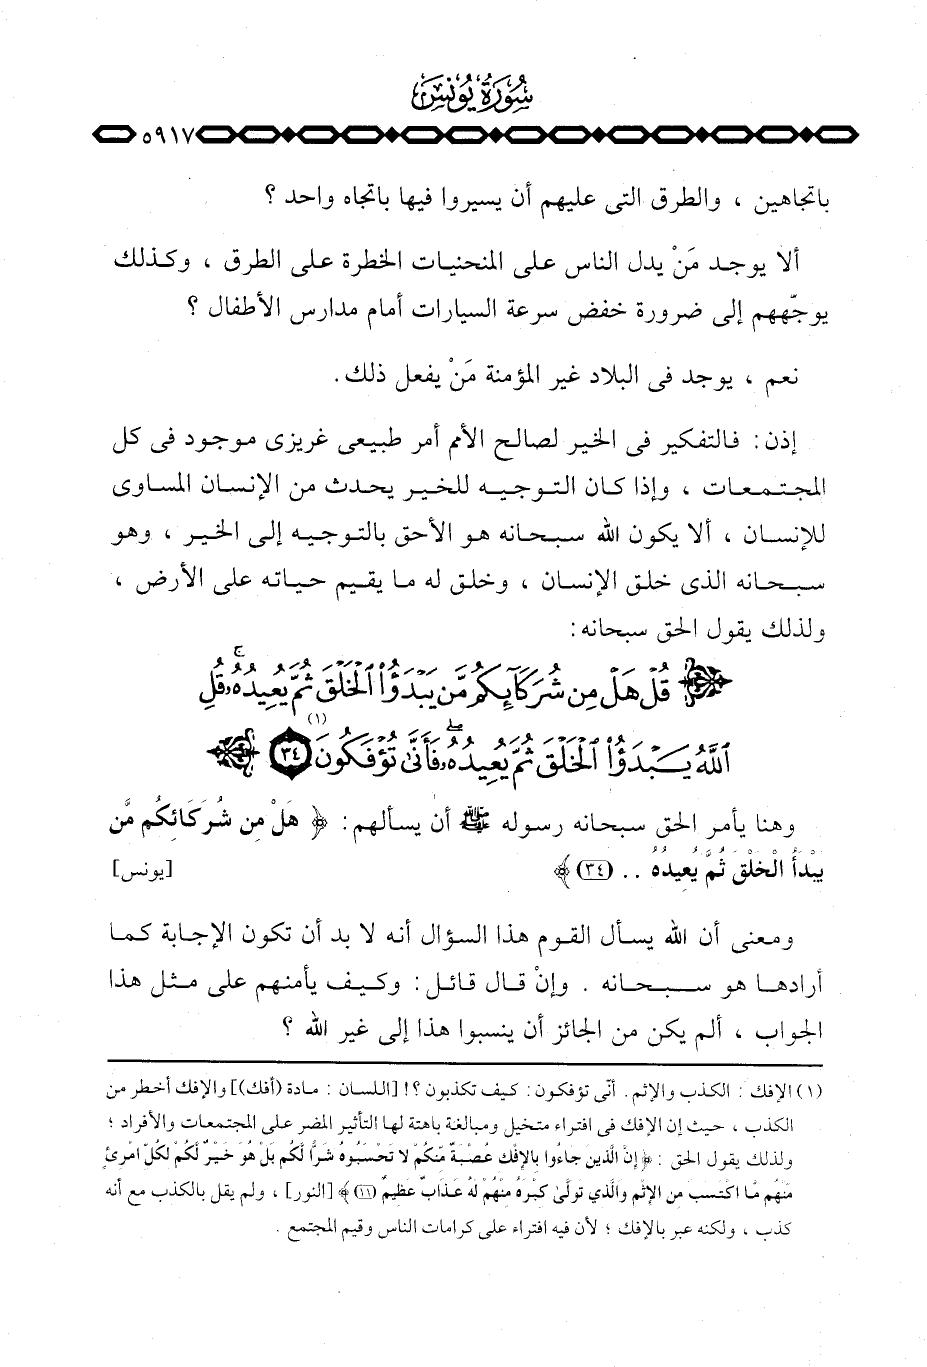 سُورَةُ يُونُسَ
٥٩١٧
باتجاهين ، والطرق التى عليهم أن يسيروا فيها باتجاه واحد ؟
ألا يوجد مَنْ يدل الناس على المنحنيات الخطرة على الطرق ، وكذلك
يوجِّههم إلى ضرورة خفض سرعة السيارات أمام مدارس الأطفال ؟
نعم ، يوجد فى البلاد غير المؤمنة مَنْ يفعل ذلك.
إذن: فالتفكير فى الخير لصالح الأمم أمر طبيعى غريزى موجود فى كل
المجتمعات ، وإذا كان التوجيه للخير يحدث من الإنسان المساوى
للإنسان ، ألا يكون الله سبحانه هو الأحق بالتوجيه إلى الخير ، وهو
سبحانه الذى خلق الإنسان ، وخلق له ما يقيم حياته على الأرض ،
ولذلك يقول الحق سبحانه:
قُلْ هَلْ مِن شُرَكَآئِكُم مَّن يَبْدَؤُا۟ ٱلْخَلْقَ ثُمَّ يُعِيدُهُۥ ۚ قُلِ
ٱللَّهُ يَبْدَؤُا۟ ٱلْخَلْقَ ثُمَّ يُعِيدُهُۥ ۖ فَأَنَّىٰ تُؤْفَكُونَ (١) ٣٤
وهنا يأمر الحق سبحانه رسوله ﷺ أن يسألهم: ﴿ هَلْ مِن شُرَكَائِكُم مَّن
يَبْدَأُ الْخَلْقَ ثُمَّ يُعِيدُهُ .. (٣٤) ﴾ [يونس]
ومعنى أن الله يسأل القوم هذا السؤال أنه لا بد أن تكون الإجابة كما
أرادها هو سبحانه . وإنْ قال قائل: وكيف يأمنهم على مثل هذا
الجواب ، ألم يكن من الجائز أن ينسبوا هذا إلى غير الله ؟
(١) الإفك : الكذب والإثم. أنّى تؤفكون: كيف تكذبون ؟! [اللسان : مادة (أفك)] والإفك أخطر من
الكذب ، حيث إن الإفك فى افتراء متخيل ومبالغة باهتة لها التأثير المضر على المجتمعات والأفراد ؛
ولذلك يقول الحق : ﴿ إِنَّ الَّذِينَ جَاءُوا بِالإِفْكِ عُصْبَةٌ مِّنكُمْ لا تَحْسَبُوهُ شَرًّا لَّكُم بَلْ هُوَ خَيْرٌ لَّكُمْ لِكُلِّ امْرِئٍ
مِّنْهُم مَّا اكْتَسَبَ مِنَ الإِثْمِ وَالَّذِي تَوَلَّىٰ كِبْرَهُ مِنْهُمْ لَهُ عَذَابٌ عَظِيمٌ (١١) ﴾ [النور] ، ولم يقل بالكذب مع أنه
كذب ، ولكنه عبر بالإفك ؛ لأن فيه افتراء على كرامات الناس وقيم المجتمع .